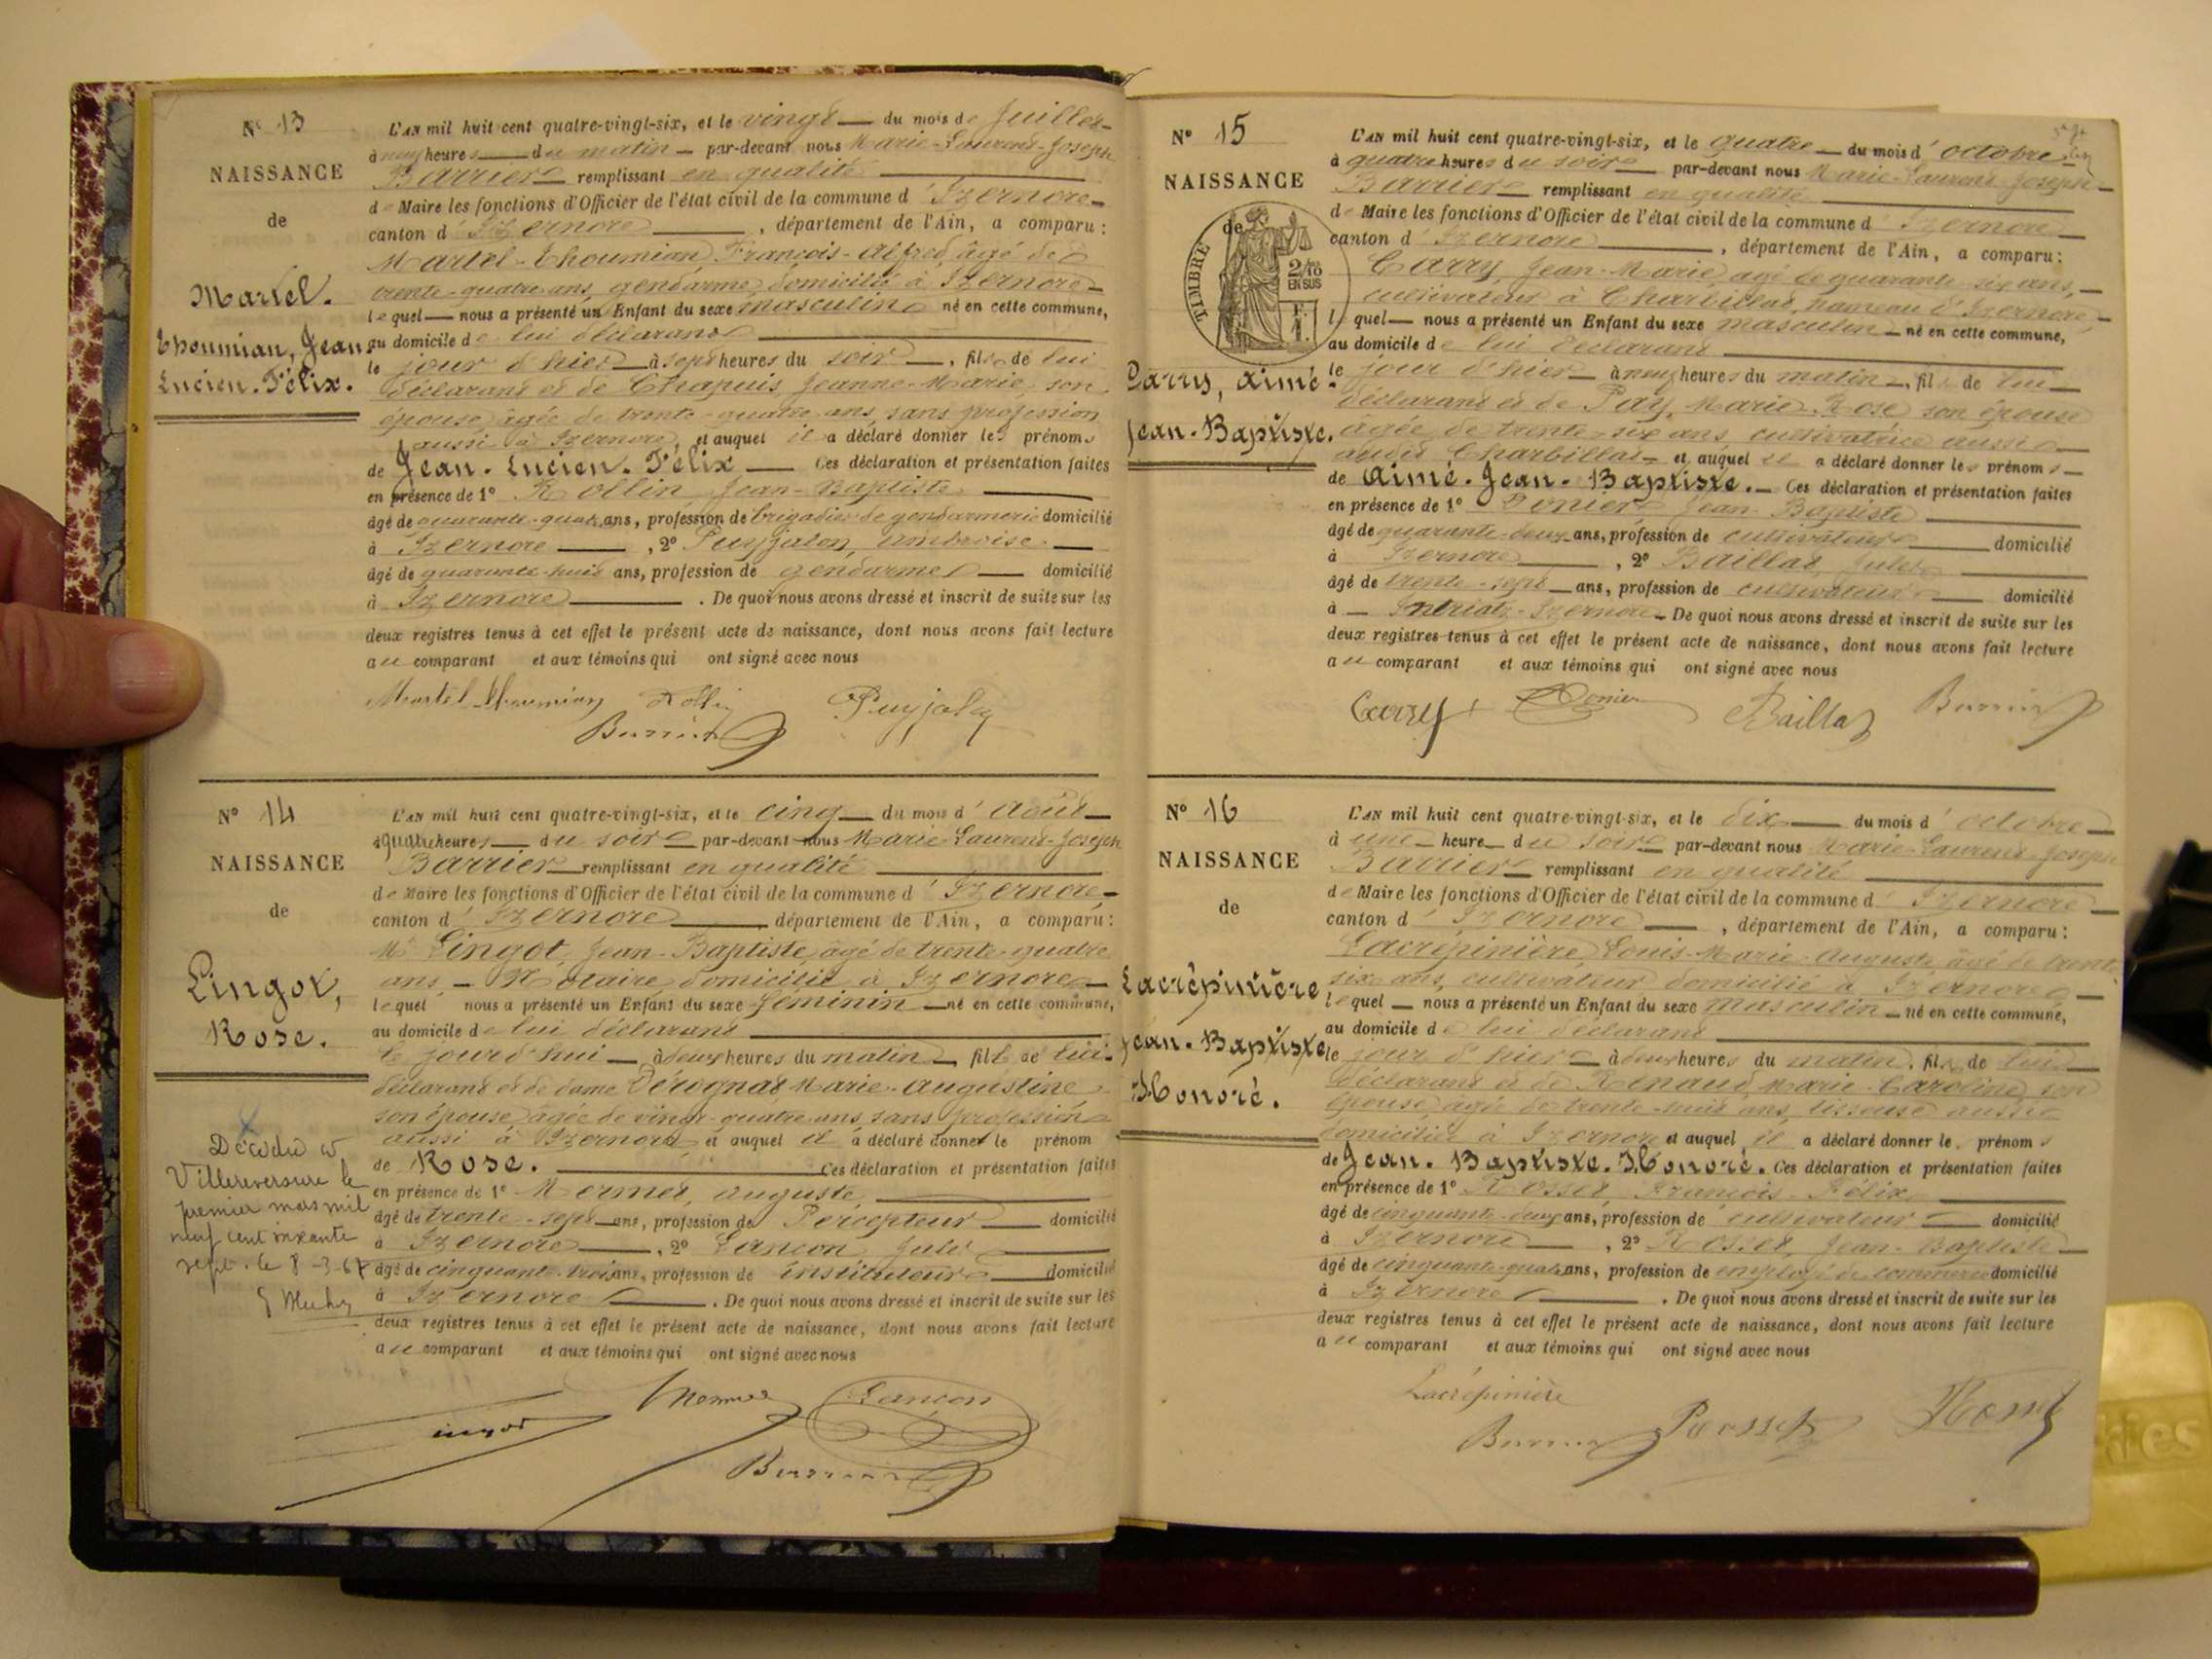 N° 13
NAISSANCE
de
Martel-
Thoumian, Jean
Lucien-Félix.
L'AN mil huit cent quatre-vingt-six, et le vingt du mois de Juillet
à neuf heures du matin par-devant nous Marie-Laurent-Joseph
Barrier remplissant en qualité
de Maire les fonctions d'Officier de l'état civil de la commune d'Izernore
canton d'Izernore, département de l'Ain, a comparu :
Martel-Thoumian, François-Alfred, âgé de
trente-quatre ans, gendarme, domicilié à Izernore
lequel nous a présenté un Enfant du sexe masculin né en cette commune,
au domicile de lui déclarant
le jour d'hier à sept heures du soir, fils de lui
déclarant et de Chapuis, Jeanne-Marie, son
épouse, âgée de trente-quatre ans, sans profession
aussi à Izernore, et auquel il a déclaré donner les prénoms
de Jean-Lucien-Félix Ces déclaration et présentation faites
en présence de 1° Rollin Jean-Baptiste
âgé de quarante-quatre ans, profession de brigadier de gendarmerie domicilié
à Izernore, 2° Puyjalon, Ambroise
âgé de quarante-huit ans, profession de gendarme domicilié
à Izernore. De quoi nous avons dressé et inscrit de suite sur les
deux registres tenus à cet effet le présent acte de naissance, dont nous avons fait lecture
au comparant et aux témoins qui ont signé avec nous
Martel Thoumian Rollin Puyjalon
Barrier
N° 14
NAISSANCE
de
Lingot,
Rose.
Décédée à
Villereversure le
premier mars mil
neuf cent soixante
sept. le 8-3-67
L'AN mil huit cent quatre-vingt-six, et le cinq du mois d'Août
à quatre heures du soir par-devant nous Marie-Laurent-Joseph
Barrier remplissant en qualité
de Maire les fonctions d'Officier de l'état civil de la commune d'Izernore
canton d'Izernore département de l'Ain, a comparu :
Me Lingot, Jean-Baptiste, âgé de trente-quatre
ans, Notaire domicilié à Izernore
lequel nous a présenté un Enfant du sexe féminin né en cette commune,
au domicile de lui déclarant
le jour d'hui à deux heures du matin, fille de lui
déclarant et de dame Marie-Augustine
son épouse, âgée de vingt-quatre ans, sans profession
aussi à Izernore et auquel il a déclaré donner le prénom
de Rose. Ces déclaration et présentation faites
en présence de 1° Mermet, Auguste
âgé de trente-sept ans, profession de Percepteur domicilié
à Izernore, 2° Lançon, Jules
âgé de cinquante-trois ans, profession de instituteur domicilié
à Izernore. De quoi nous avons dressé et inscrit de suite sur les
deux registres tenus à cet effet le présent acte de naissance, dont nous avons fait lecture
au comparant et aux témoins qui ont signé avec nous
Lingot Mermet Lançon
Barrier
N° 15
NAISSANCE
de
TIMBRE
2/10
EN SUS
F.
1.
Carry, Aimé-
Jean-Baptiste.
L'AN mil huit cent quatre-vingt-six, et le quatre du mois d'octobre
à quatre heures du soir par-devant nous Marie-Laurent-Joseph
Barrier remplissant en qualité
de Maire les fonctions d'Officier de l'état civil de la commune d'Izernore
canton d'Izernore, département de l'Ain, a comparu :
Carry, Jean-Marie, âgé de quarante six ans,
cultivateur à Charbillat, hameau d'Izernore,
lequel nous a présenté un Enfant du sexe masculin né en cette commune,
au domicile de lui déclarant
le jour d'hier à neuf heures du matin, fils de lui
déclarant et de Pay, Marie-Rose son épouse
âgée de trente-six ans cultivatrice aussi
audit Charbillat et auquel il a déclaré donner les prénoms
de Aimé-Jean-Baptiste. Ces déclaration et présentation faites
en présence de 1° Donier Jean-Baptiste
âgé de quarante-deux ans, profession de cultivateur domicilié
à Izernore, 2° Baillat, Jules
âgé de trente-sept ans, profession de cultivateur domicilié
à Intriat-Izernore De quoi nous avons dressé et inscrit de suite sur les
deux registres tenus à cet effet le présent acte de naissance, dont nous avons fait lecture
au comparant et aux témoins qui ont signé avec nous
Carry Donier Baillat Barrier
N° 16
NAISSANCE
de
Lacrépinière,
Jean-Baptiste
Honoré.
L'AN mil huit cent quatre-vingt-six, et le dix du mois d'octobre
à une heure du soir par-devant nous Marie-Laurent-Joseph
Barrier remplissant en qualité
de Maire les fonctions d'Officier de l'état civil de la commune d'Izernore
canton d'Izernore, département de l'Ain, a comparu :
Lacrépinière, Louis-Marie-Auguste âgé de trente
six ans, cultivateur domicilié à Izernore
lequel nous a présenté un Enfant du sexe masculin né en cette commune,
au domicile de lui déclarant
le jour d'hier à deux heures du matin, fils de lui
déclarant et de Renaud, Marie-Caroline, son
épouse, âgée de trente-huit ans, tisseuse aussi
domiciliée à Izernore et auquel il a déclaré donner les prénoms
de Jean-Baptiste-Honoré. Ces déclaration et présentation faites
en présence de 1° Rosset, François-Félix
âgé de cinquante-deux ans, profession de cultivateur domicilié
à Izernore, 2° Rosset, Jean-Baptiste
âgé de cinquante-quatre ans, profession de employé de commerce domicilié
à Izernore. De quoi nous avons dressé et inscrit de suite sur les
deux registres tenus à cet effet le présent acte de naissance, dont nous avons fait lecture
au comparant et aux témoins qui ont signé avec nous
Lacrépinière
Barrier Rosset